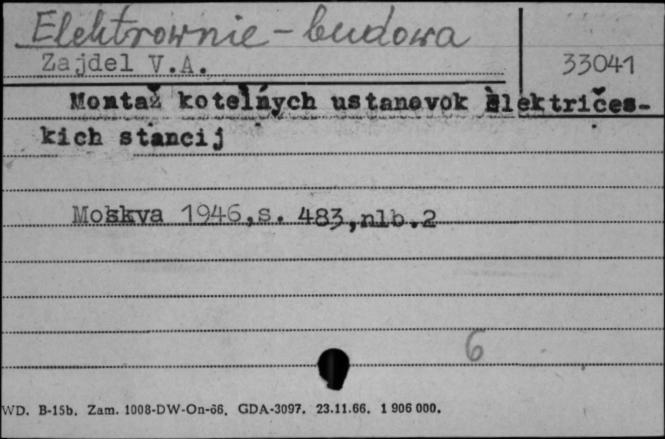 Elektrownie - budowa
Zajdel V.A.
33041
Montaž kotelńych ustanovok èlektričes-
kich stancij
Moskva 1946,s. 483,nlb.2
6
WD. B-15b. Zam. 1008-DW-On-66. GDA-3097. 23.11.66. 1 906 000.